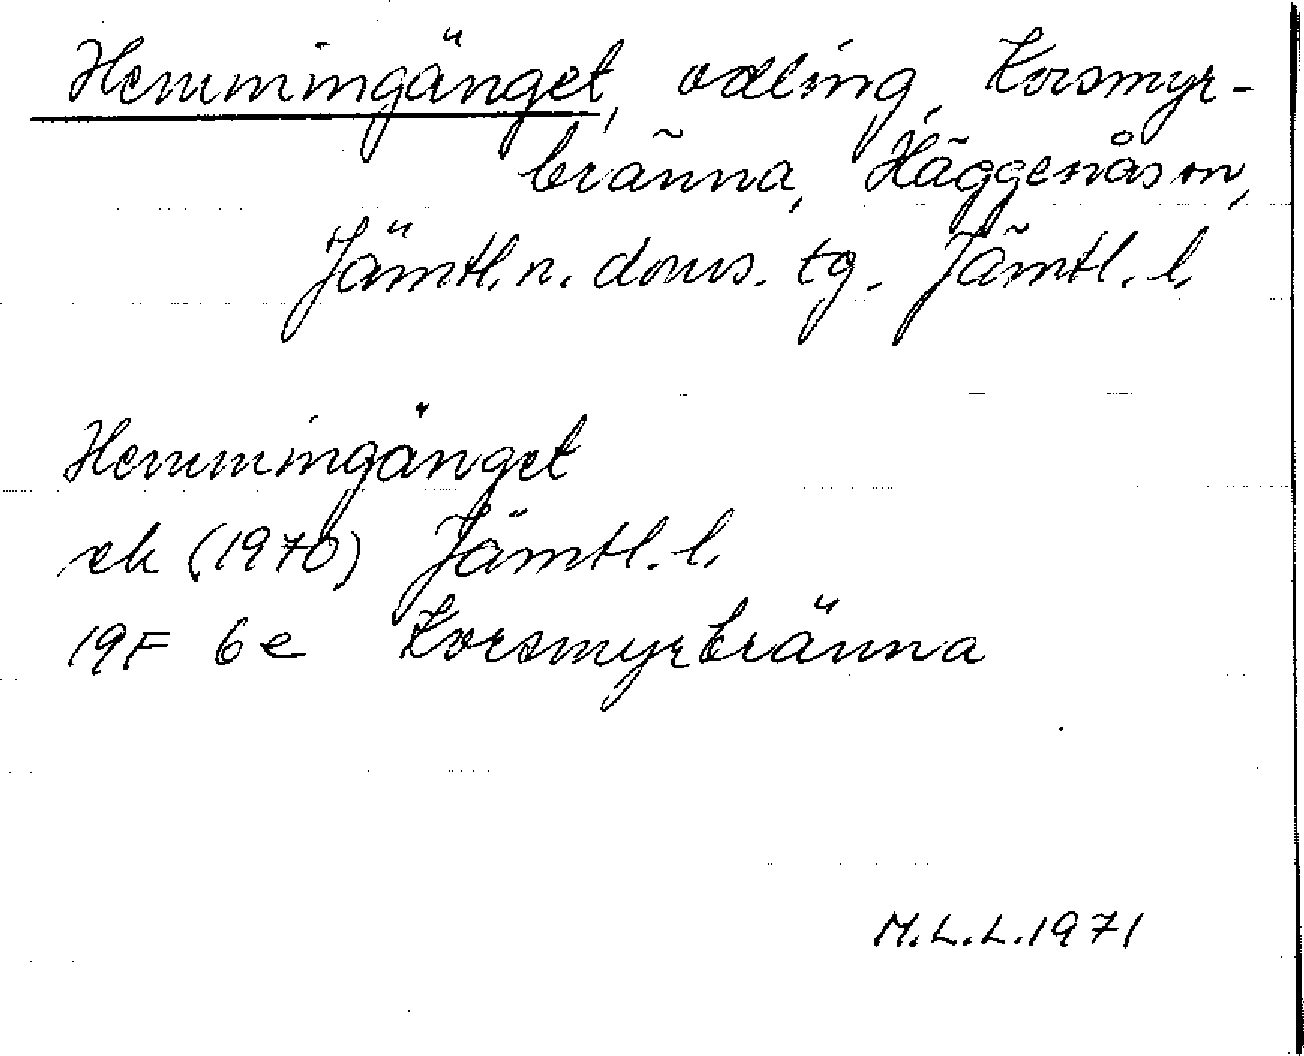 Hemmingänget, odling, Korsmyr-
bränna, Häggenås sn,
Jämtl. n. doms. tg. Jämtl. l.
Hemmingänget
ek (1970) Jämtl. l.
19F 6e Korsmyrbränna
M.L.L. 1971